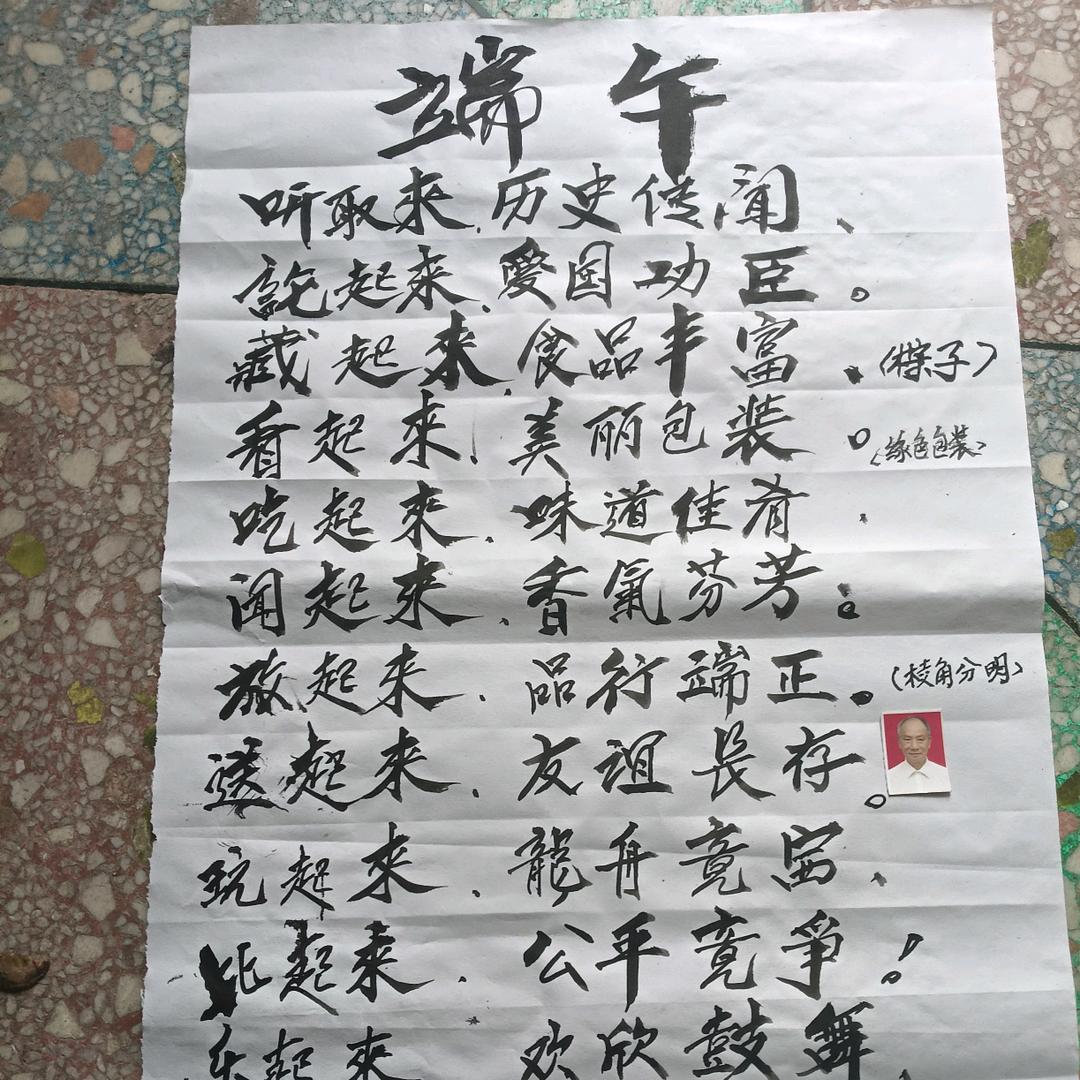 端午
听取来、历史传闻、
說起来、爱国功臣。
藏起来、食品丰富、(粽子)
看起来、美丽包装。(绿色包装)
吃起来、味道佳肴、
闻起来、香氣芬芳。
放起来、品行端正。(棱角分明)
送起来、友谊長存。
玩起来、龍舟竟
比起来、公平竟爭!
乐起来 欢欣鼓舞、